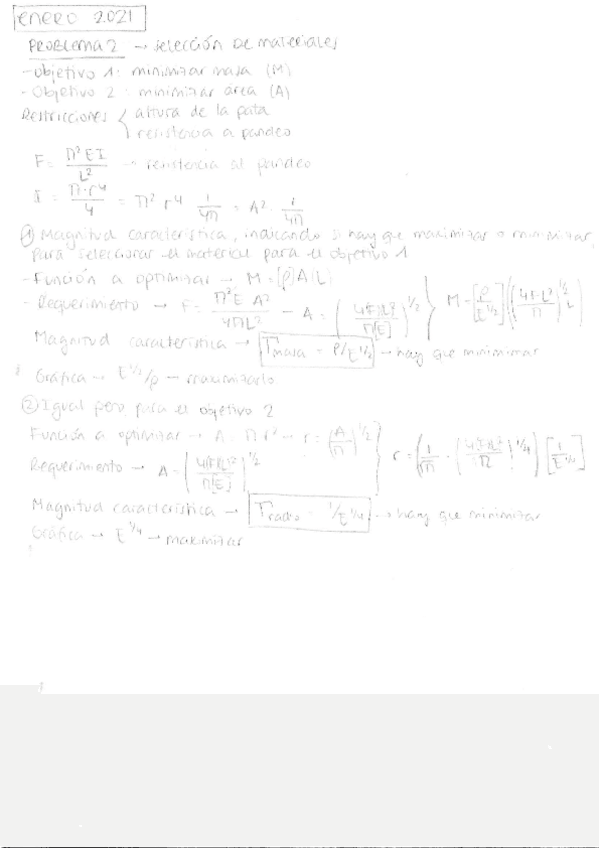 ENERO 2021
PROBLEMA 2 → selección de materiales
- Objetivo 1: minimizar masa (M)
- Objetivo 2: minimizar área (A)
Restricciones { altura de la pata
resistencia a pandeo
F = π² E I / L² → resistencia al pandeo
I = π·r⁴ / 4 = π² r⁴ 1/4π = A² · 1/4π
① Magnitud característica, indicando si hay que maximizar o minimizar,
para seleccionar el material para el objetivo 1
- Función a optimizar → M = [ρ] A (L)
- Requerimiento → F = π² E A² / 4πL² → A = (4(F)L² / π[E])^1/2 } M = [ρ / E^1/2] ((4F·L² / π)^1/2 L)
Magnitud característica → Γmasa = ρ/E^1/2 → hay que minimizar
Gráfica → E^1/2/ρ → maximizarlo
② Igual pero para el objetivo 2
Función a optimizar → A = π r² → r = (A/π)^1/2
Requerimiento → A = (4(F)(L)² / π[E])^1/2 } r = (1/√π · (4(F)(L)² / π)^1/4) [1 / E^1/4]
Magnitud característica → Γradio = 1/E^1/4 → hay que minimizar
Gráfica → E^1/4 → maximizar